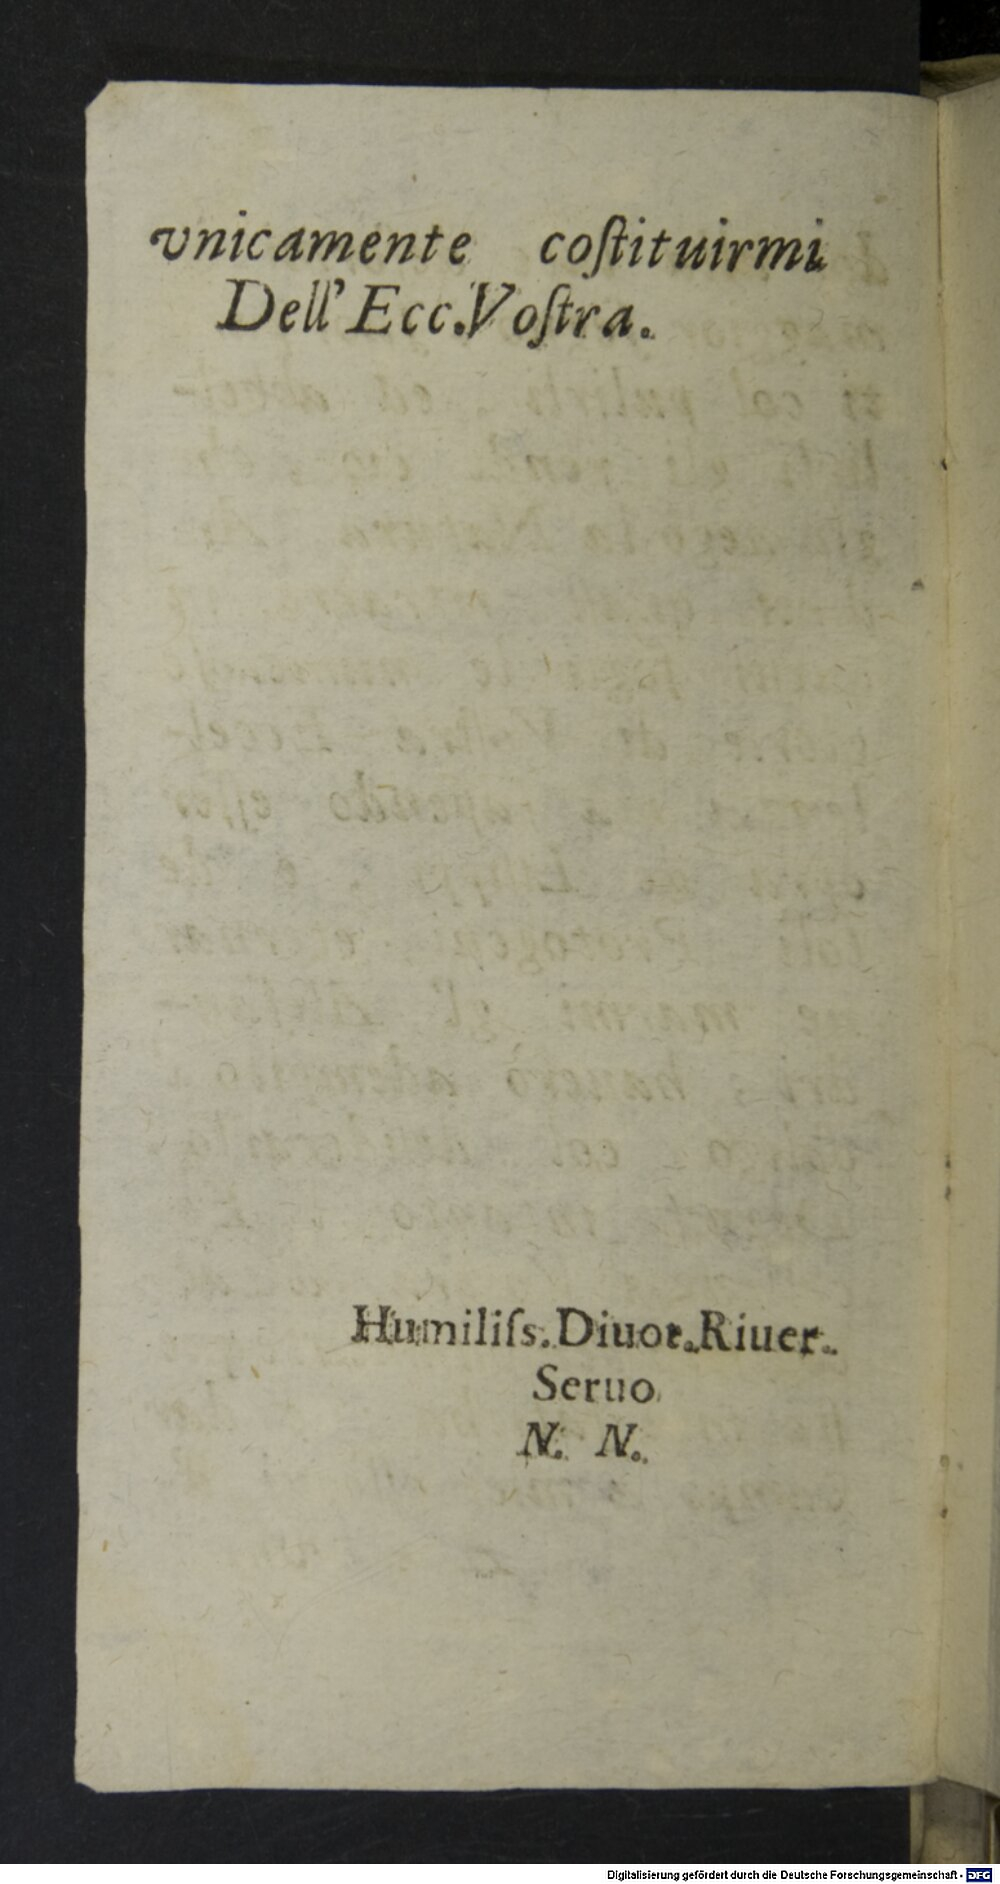 vnicamente coſtituirmi
Dell' Ecc. Voſtra.
Humiliſs. Diuot. Riuer.
Seruo
N. N.
Digitalisierung gefördert durch die Deutsche Forschungsgemeinschaft - DFG